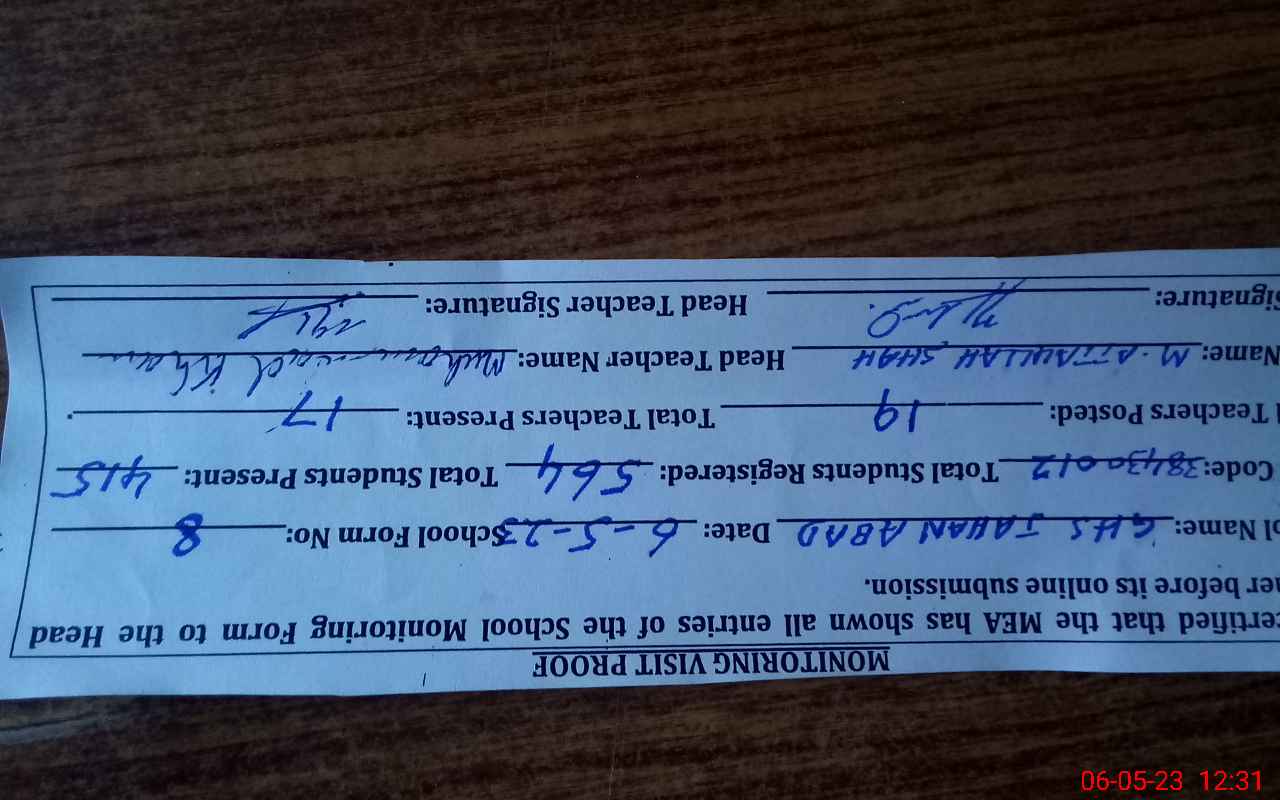 MONITORING VISIT PROOF
ertified that the MEA has shown all entries of the School Monitoring Form to the Head
er before its online submission.
l Name: GHS JAHAN ABAD Date: 6-5-23 School Form No: 8
Code: 38430012 Total Students Registered: 564 Total Students Present: 415
l Teachers Posted: 19 Total Teachers Present: 17.
Name: M. ATTAULLAH SHAH Head Teacher Name: Muhammad Khan
Signature: Head Teacher Signature:
06-05-23 12:31